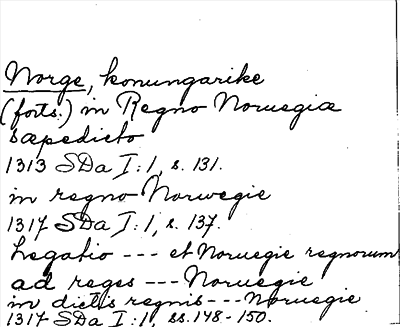 Norge, konungarike
(forts.) in Regno Noruegiæ
sæpedicto
1313 SDa I:1, s. 131.
in regno Norwegie
1317 SDa I:1, s. 137.
Legatio --- et Noruegie regnorum
ad reges --- Noruegie
in dictis regnis --- Noruegie
1317 SDa I:1, ss. 148-150.